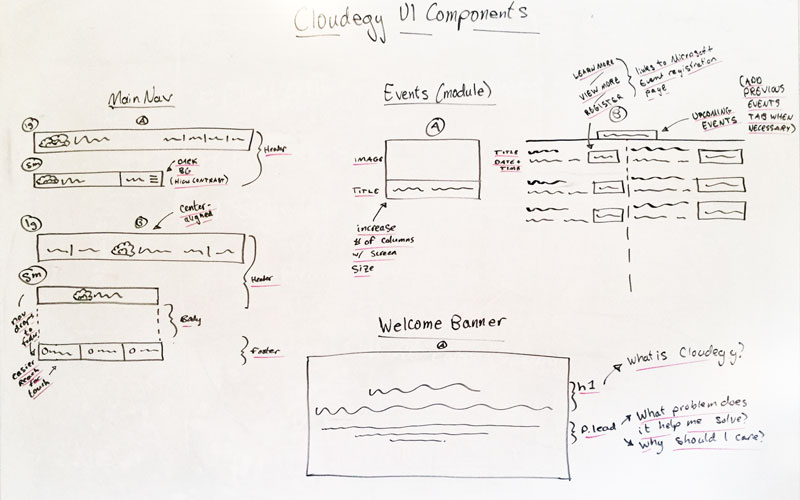 Cloudegy UI Components
Main Nav
A
lg
Header
sm
DARK
BG
(HIGH CONTRAST)
lg
B
center-
aligned
Header
sm
nav
drops
to
Body
Footer
easier
reach
for
touch
Events (module)
A
IMAGE
TITLE
increase
# of columns
w/ screen
size
LEARN MORE
VIEW MORE
REGISTER
links to Microsoft
Event registration
page
B
UPCOMING
EVENTS
(ADD
PREVIOUS
EVENTS
TAB WHEN
NECESSARY)
TITLE
DATE +
TIME
Welcome Banner
A
h1
What is Cloudegy?
P.lead
What problem does
it help me solve?
Why should I care?